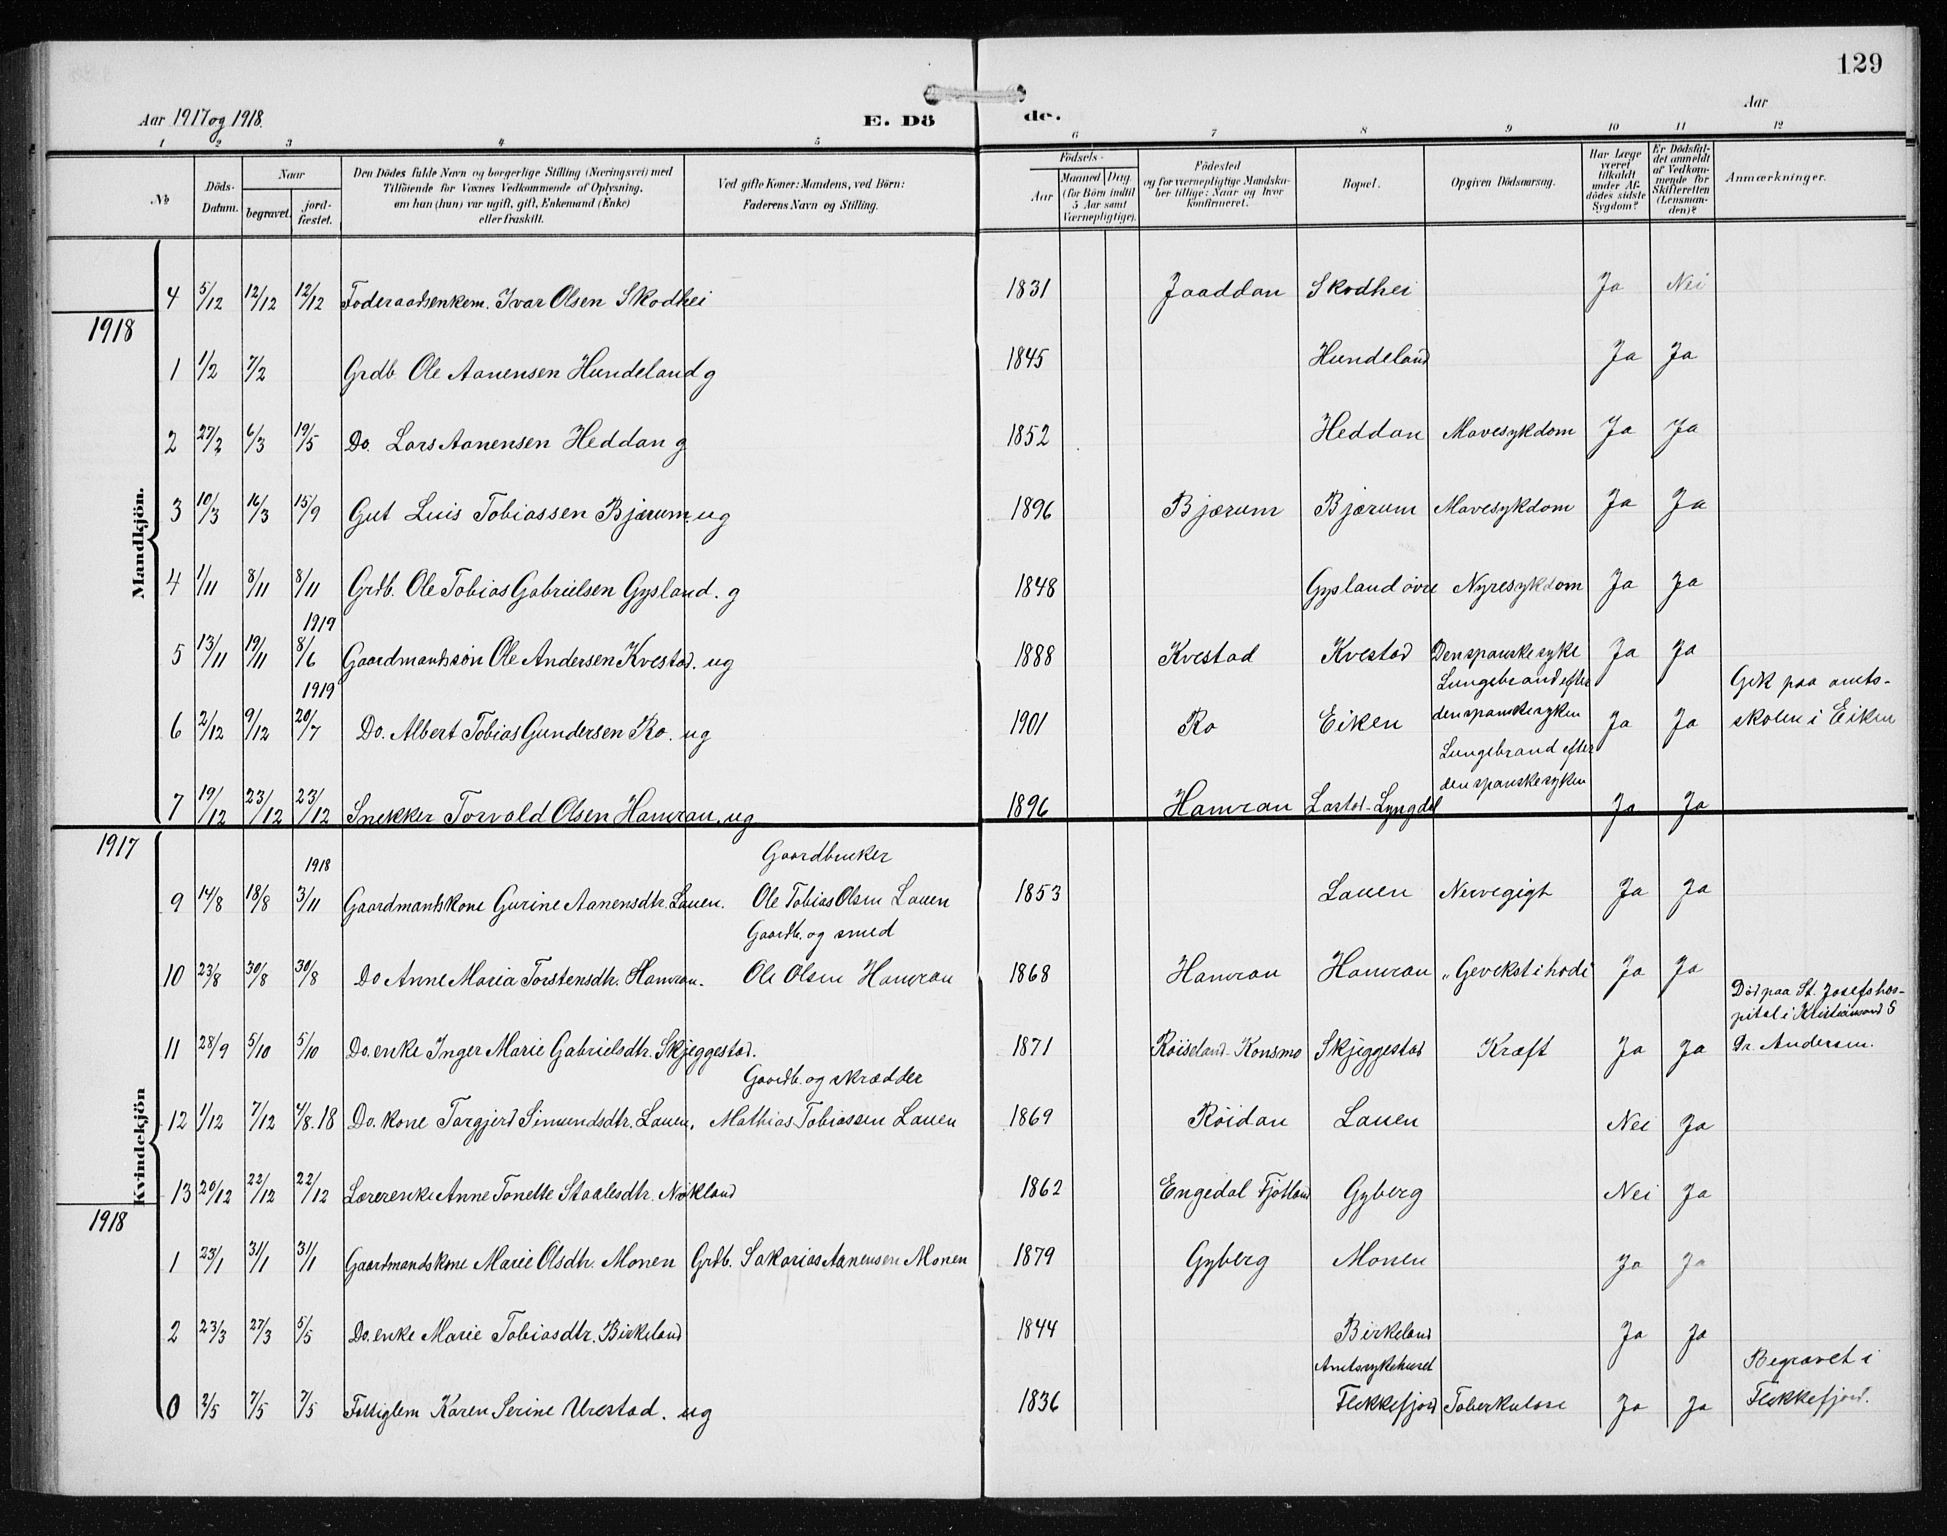 129
Aar 1917 og 1918.
E. Dö
de.
Aar
1 2 3 4 5 6 7 8 9 10 11 12
No
Döds-Datum.
Naar
begravet.
jord-fæstet.
Den Dödes fulde Navn og borgerlige Stilling (Næringsvei) med
Tilföiende for Voxnes Vedkommende af Oplysning,
om han (hun) var ugift, gift, Enkemand (Enke)
eller fraskilt.
Ved gifte Koner: Mandens, ved Börn:
Faderens Navn og Stilling.
Födsels-
Aar
Maaned Dag
(for Börn indtil
5 Aar samt
Værnepligtige).
Födested
og for værnepligtige Mandska-
ber tillige: Naar og hvor
konfirmeret.
Bopæl.
Opgiven Dödsaarsag.
Har Læge
været
tilkaldt
under Af-
dödes sidste
Sygdom?
Er Dödsfal-
det anmeldt
af Vedkom-
mende for
Skifteretten
(Lensman-
den)?
Anmærkninger.
Mandkjön.
4 5/12 12/12 12/12 Foderaadsenkem. Ivar Olsen Skodhei 1831 Jaaddan Skodhei Ja Nei
1918
1 1/2 7/2 Grdb. Ole Aanensen Hundeland g 1845 Hundeland Ja Ja
2 27/2 6/3 19/5 Do. Lars Aanensen Heddan g 1852 Heddan Mavesykdom Ja Ja
3 10/3 16/3 15/9 Gut Luis Tobiassen Bjærum. ug 1896 Bjærum Bjærum Mavesykdom Ja Ja
4 1/11 8/11 8/11 Grdb. Ole Tobias Gabrielsen Gysland. g 1848 Gysland övre Nyresykdom Ja Ja
1919
5 13/11 19/11 8/6 Gaardmandssön Ole Andersen Kvestad. ug 1888 Kvestad Kvestad Den spanske syke Ja Ja
1919 Lungebrand efter Gik paa amts-
6 2/12 9/12 20/7 Do. Albert Tobias Gundersen Ro. ug 1901 Ro Eiken den spanske syken Ja Ja skolen i Eiken
Lungebrand efter
den spanske syken
7 19/12 23/12 23/12 Snekker Torvald Olsen Hamran. ug 1896 Hamran Lastad-Lyngdal Ja Ja
1917
Kvindekjön
1918 Gaardbruker
9 14/8 18/8 3/11 Gaardmandskone Gurine Aanensdtr. Lauen. Ole Tobias Olsen Lauen 1853 Lauen Nervegigt Ja Ja
Gaardb. og smed
10 23/8 30/8 30/8 Do Anne Maria Torstensdtr. Hamran. Ole Olsen Hamran 1868 Hamran Hamran „Gevekst i hode" Ja Ja
Död paa St. Josefs hos-
pital i Kristiansand S
11 28/9 5/10 5/10 Do. enke Inger Marie Gabrielsdtr. Skjeggestad. 1871 Röiseland-Konsmo Skjeggestad Kræft Ja Ja Dr. Andersen.
Gaardb. og skrædder
12 1/12 7/12 4/8.18 Do. kone Targjerd Simundsdtr. Lauen, Mathias Tobiassen Lauen 1869 Röidan Lauen Nei Ja
13 20/12 22/12 22/12 Lærerenke Anne Tonette Staalesdtr. Nökland 1862 Engedal Fjotland Gyberg Nei Ja
1918
1 23/1 31/1 31/1 Gaardmandskone Marie Olsdtr. Monen Grdb. Sakarias Aanensen Monen 1879 Gyberg Monen Ja Ja
2 23/3 27/3 5/5 Do. enke Marie Tobiasdtr. Birkeland 1844 Birkeland Ja Ja
Amtssykehuset Begravet i
0 2/5 7/5 7/5 Fattiglem Karen Serine Urestad. ug 1836 Flekkefjord Toberkulose Ja Ja Flekkefjord.